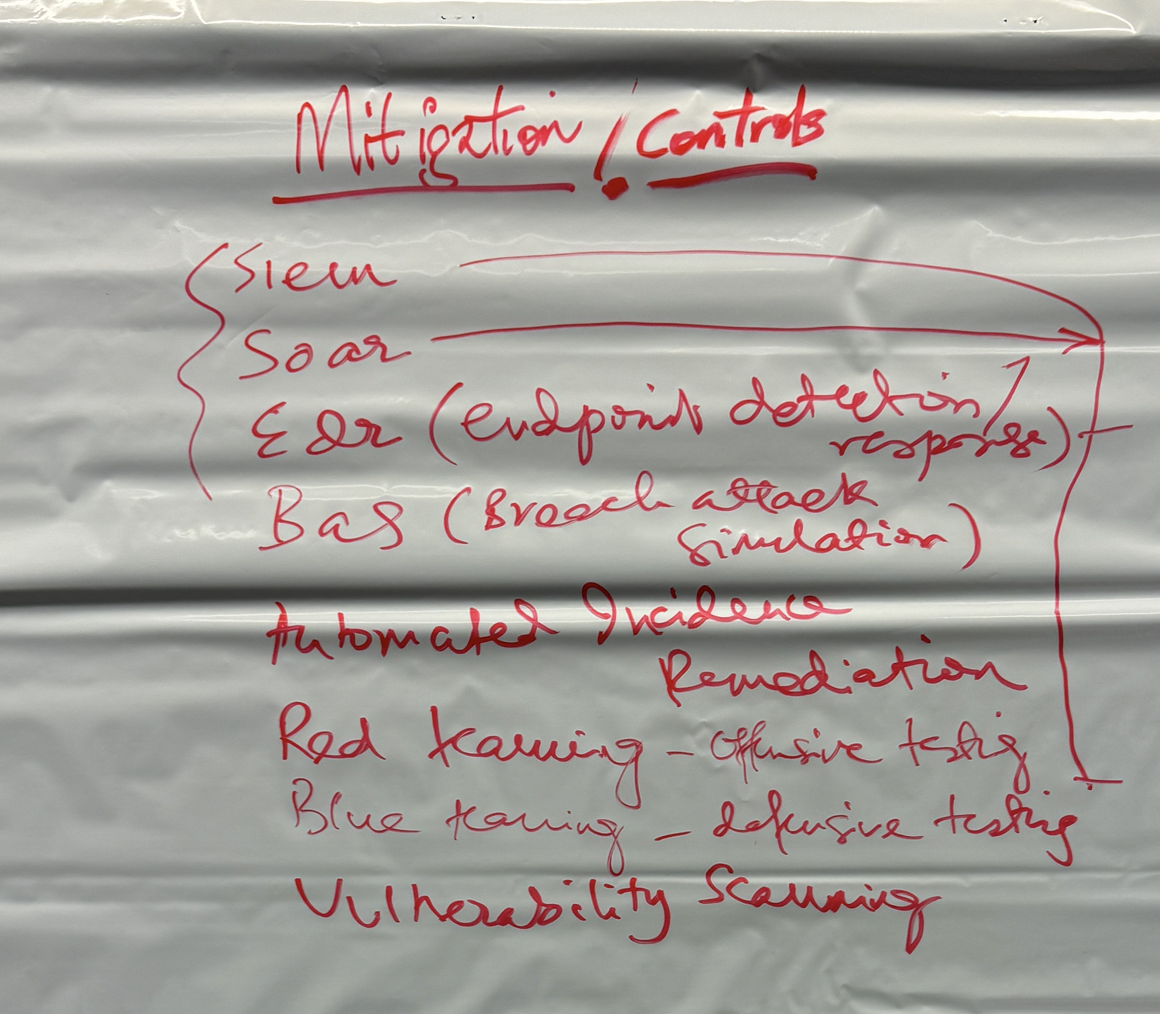 Mitigation / Controls
Siem
Soar
Edr (endpoint detection/
response)
Bas (Breach attack
Simulation)
Automated Incidence
Remediation
Red teaming - offensive testig
Blue teaming - defensive testing
Vulnerability Scanning